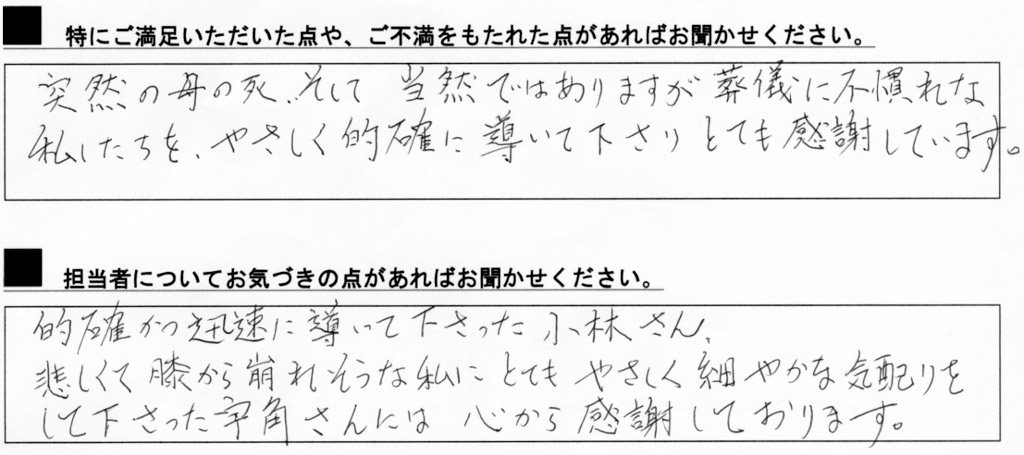 ■ 特にご満足いただいた点や、ご不満をもたれた点があればお聞かせください。
突然の母の死、そして 当然ではありますが 葬儀に不慣れな
私たちを、やさしく的確に導いて下さり とても感謝しています。
■ 担当者についてお気づきの点があればお聞かせください。
的確かつ迅速に導いて下さった小林さん、
悲しくて膝から崩れそうな私に とても やさしく細やかな気配りを
して下さった宇角さんには 心から感謝しております。